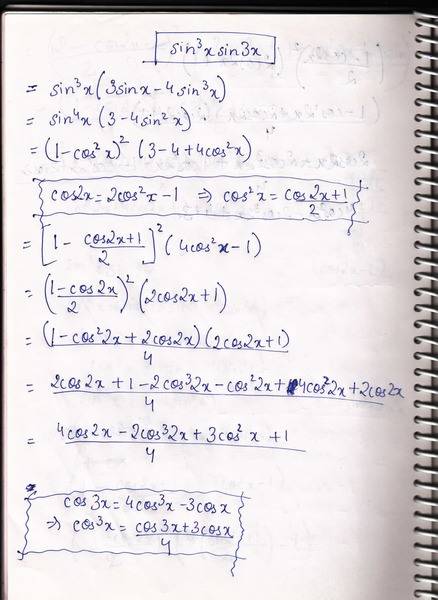 sin³x sin3x.
= sin³x (3sinx - 4sin³x)
= sin⁴x (3 - 4sin²x)
= (1 - cos²x)² (3 - 4 + 4cos²x)
cos2x = 2cos²x - 1 ⇒ cos²x = (cos2x+1)/2
= [1 - (cos2x+1)/2]² (4cos²x - 1)
= ((1 - cos2x)/2)² (2cos2x + 1)
= (1 - cos²2x + 2cos2x)(2cos2x + 1)/4
= (2cos2x + 1 - 2cos³2x - cos²2x + 4cos²2x + 2cos2x)/4
= (4cos2x - 2cos³2x + 3cos²x + 1)/4
cos3x = 4cos³x - 3cosx
⇒ cos³x = (cos3x + 3cosx)/4